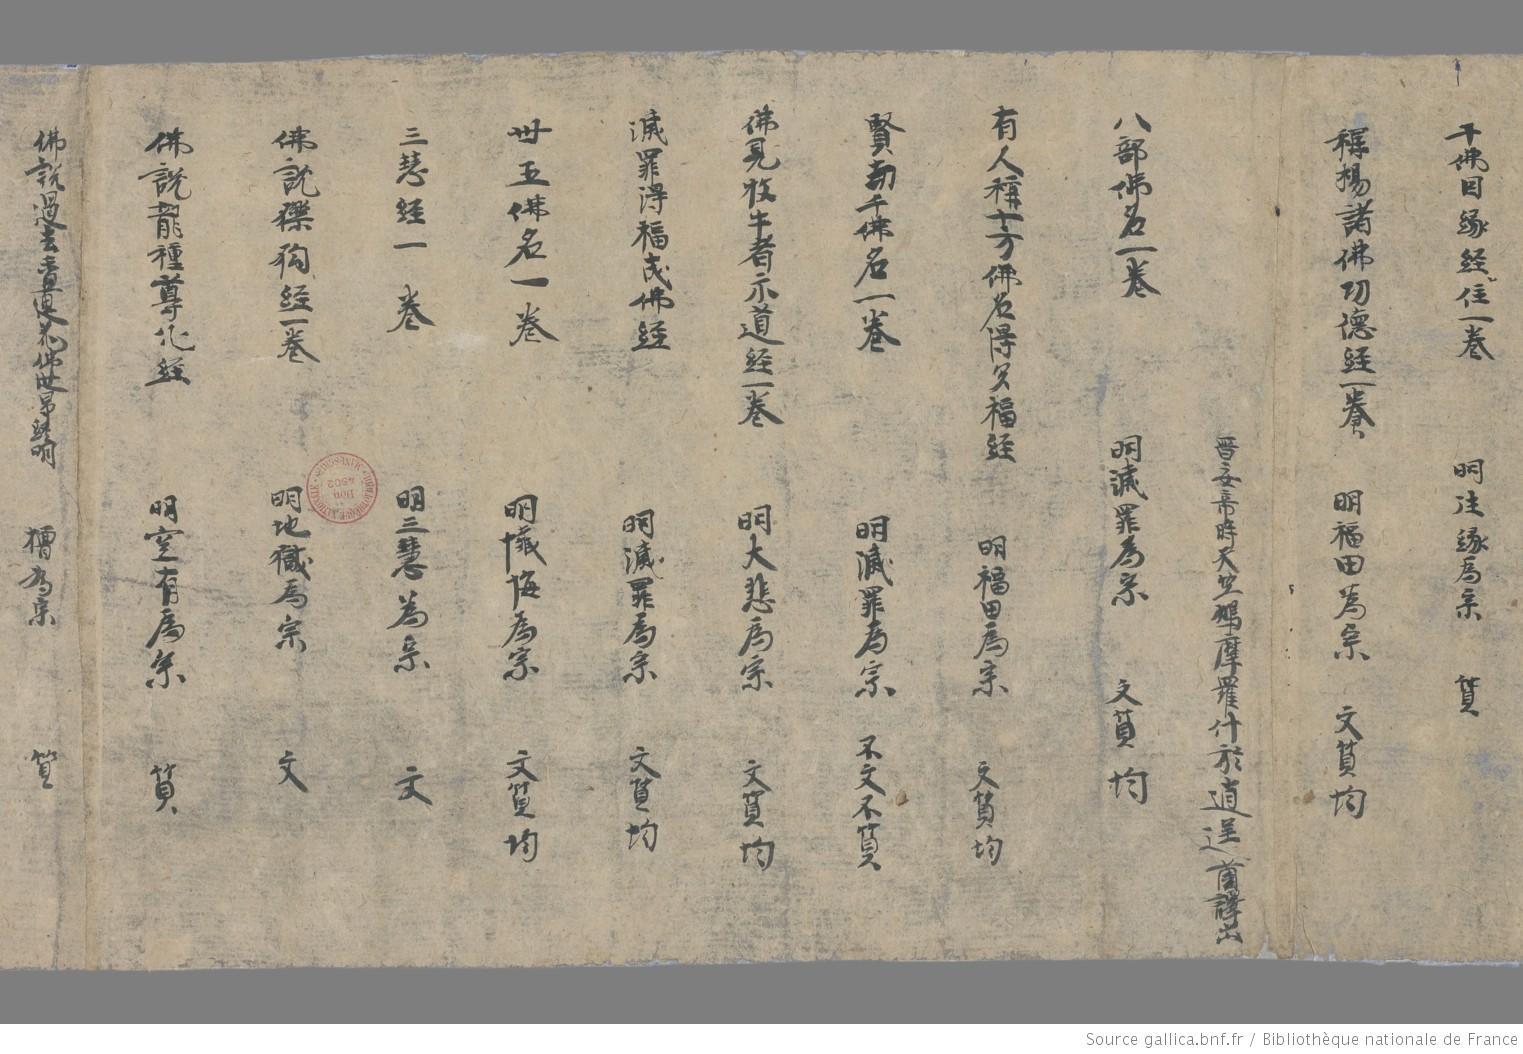 千佛因緣經住一卷 明法緣為宗 質
稱揚諸佛功德經一卷 明福田為宗 文質均
晉安帝時天竺鳩摩羅什於逍遥薗譯出
八部佛名一卷 明滅罪為宗 文質均
有人稱十方佛名得多福經 明福田為宗 文質均
賢劫千佛名一卷 明滅罪為宗 不文不質
佛見牧牛者示道經一卷 明大悲為宗 文質均
滅罪得福成佛經 明滅罪為宗 文質均
卅五佛名一卷 明懺悔為宗 文質均
三慧經一卷 明三慧為宗 文
佛說獼狗經一卷 明地獄為宗 文
佛說龍種尊化經 明空有為宗 質
佛說過去香蓮花佛世界經明 為宗 質
BIBLIOTHÈQUE NATIONALE MANUSCRITS Don 4502
Source gallica.bnf.fr / Bibliothèque nationale de France